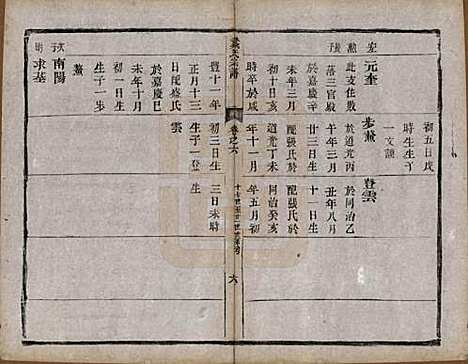 初五日戌
時生生子
一文
登雲
於同治乙
丑年八月
十一日生
配張氏於
同治癸亥
年五月
初三日未時
生
步蟾
於道光丙
午年三月
廿三日生
配張氏於
道光丁未
年十一月
初三日生
生子一登
雲
元奎
此支住敖
落三官殿
於嘉慶辛
未年三月
初十日亥
時卒於咸
豐十一年
正月十三
日配盛氏
於嘉慶己
未年十月
初一日生
生子一步
蟾
南陽
求基
卷之六
六